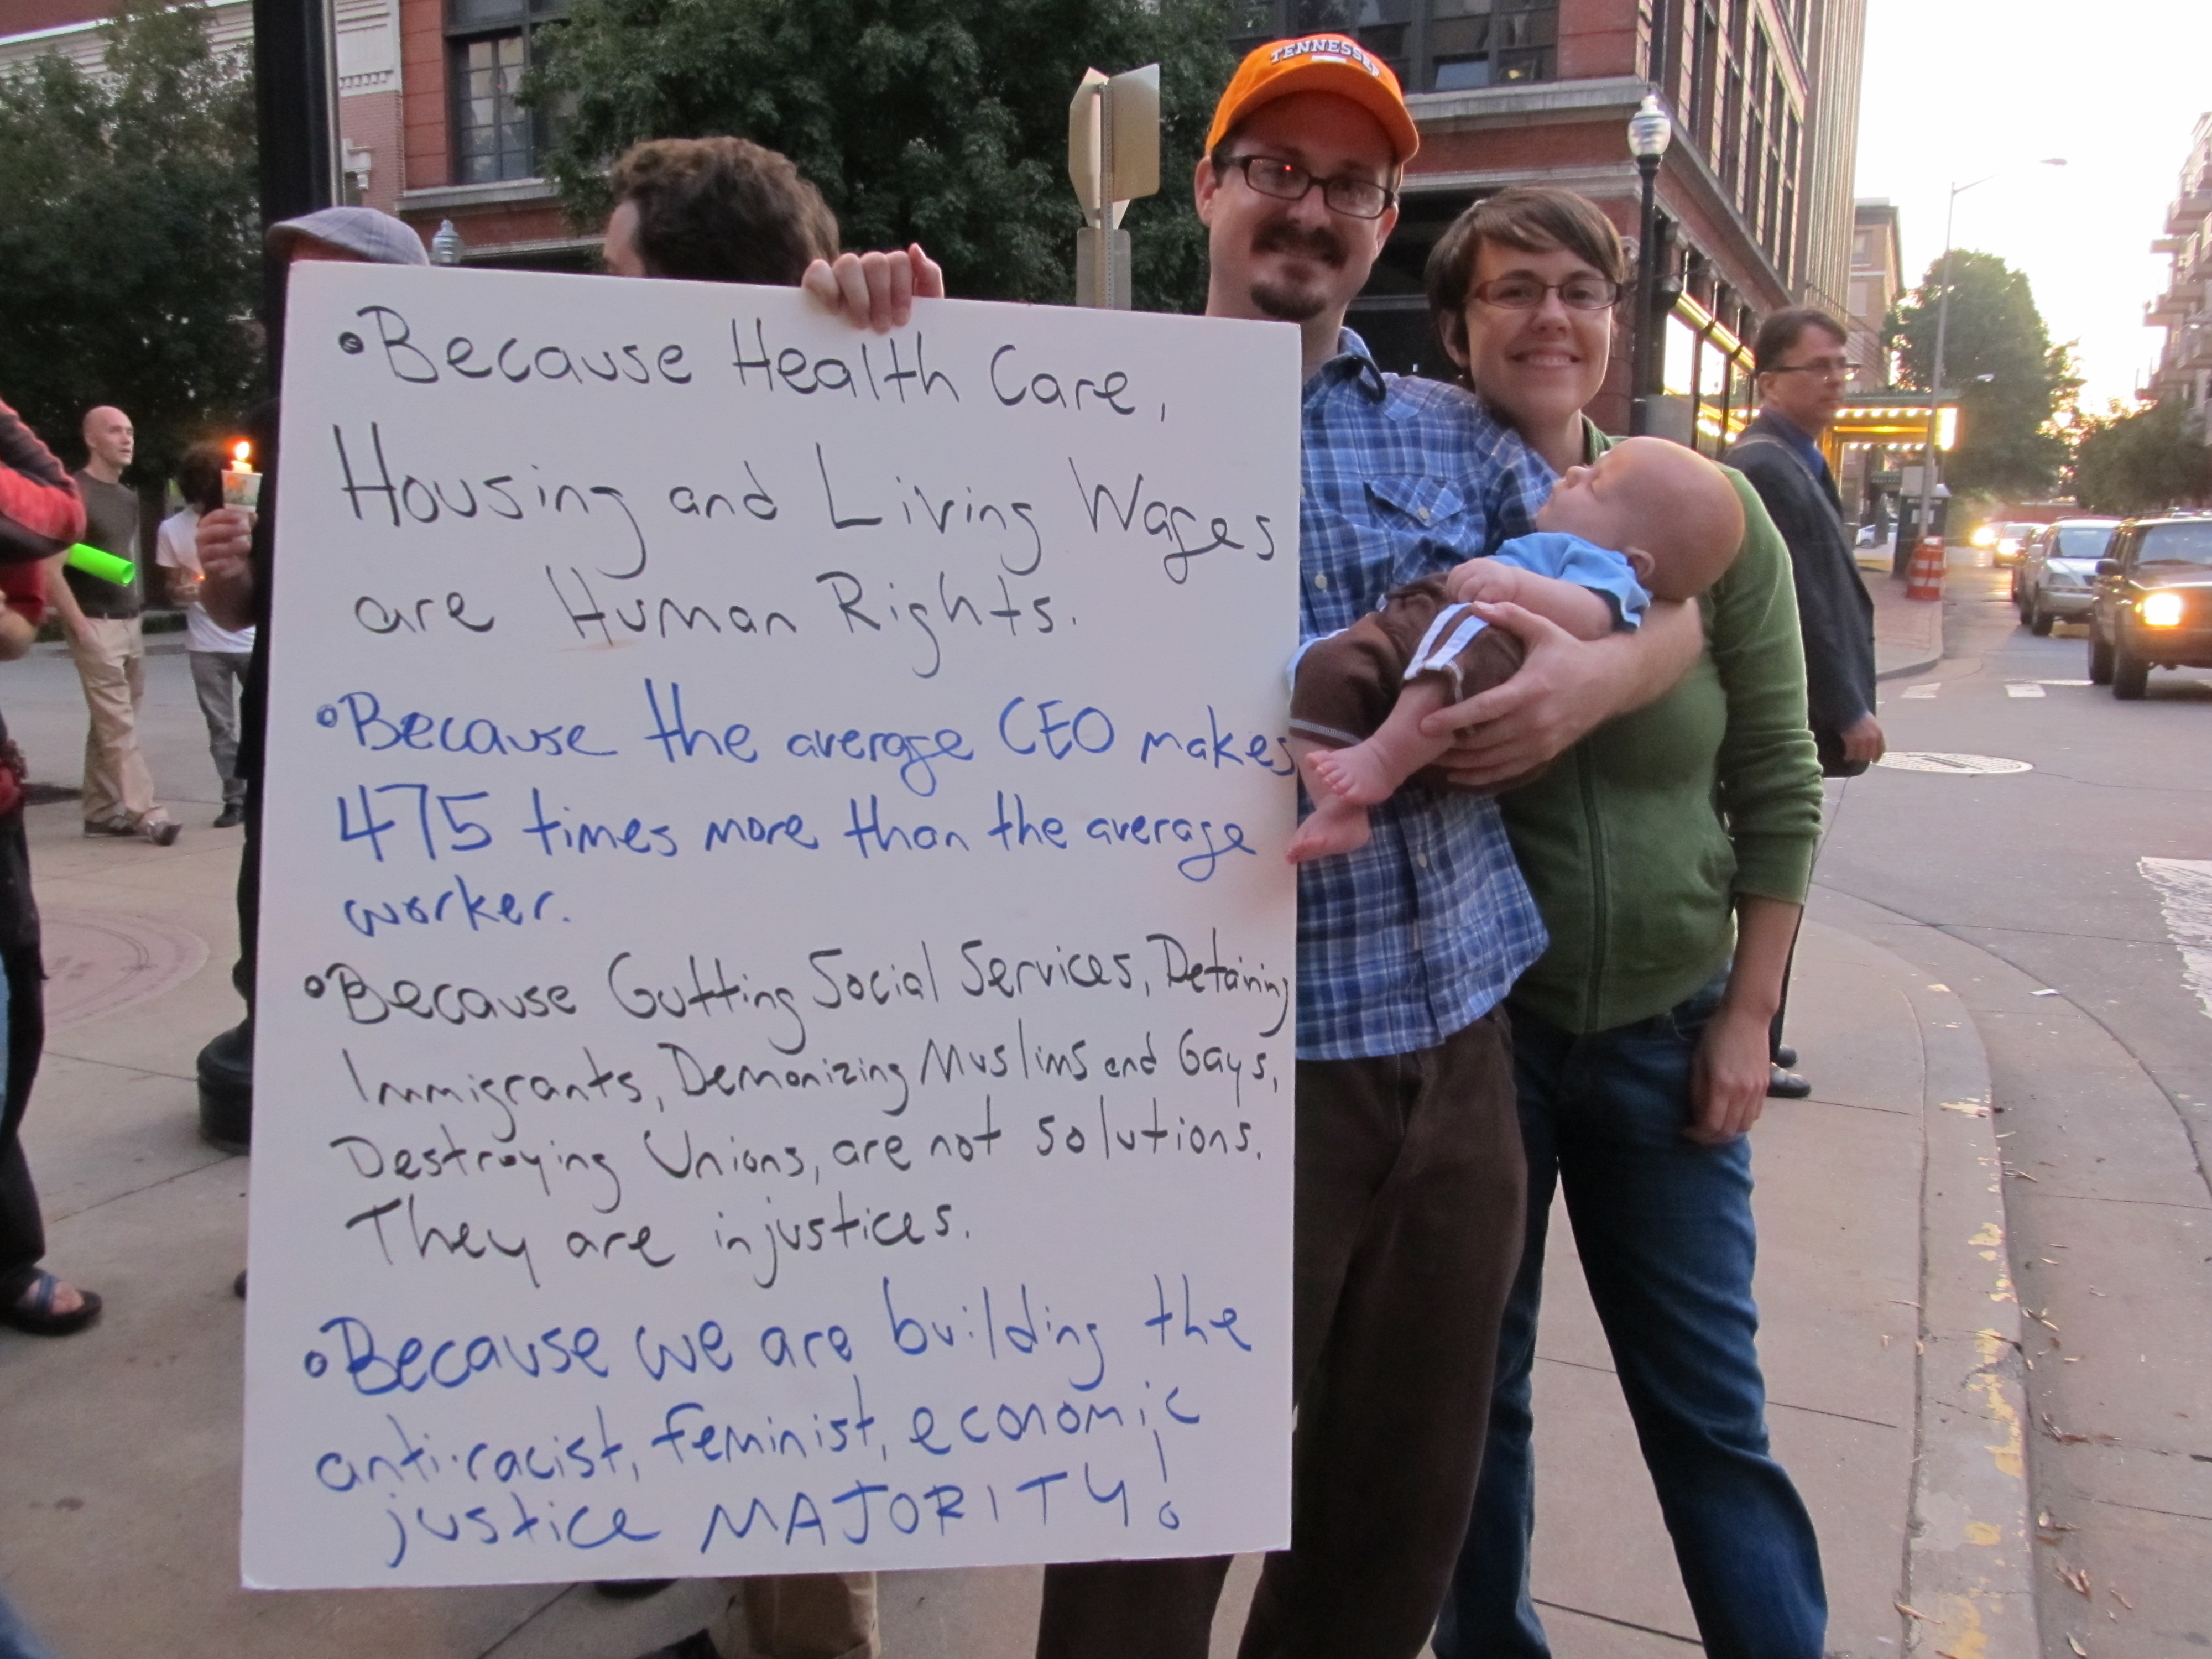 TENNESSEE
•Because Health Care,
Housing and Living Wages
are Human Rights.
•Because the average CEO makes
475 times more than the average
worker.
•Because Gutting Social Services, Detaining
Immigrants, Demonizing Muslims and Gays,
Destroying Unions, are not solutions.
They are injustices.
•Because we are building the
anti-racist, feminist, economic
justice MAJORITY!